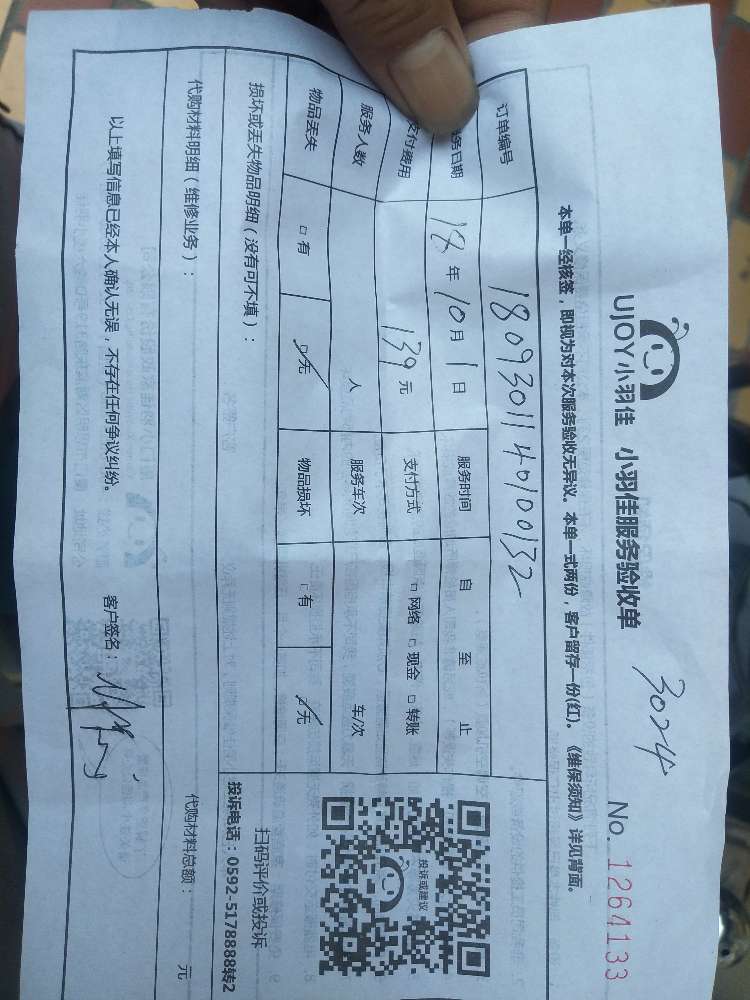 UJOY小羽佳 小羽佳服务验收单 3024 No. 1264133
本单一经核签，即视为对本次服务验收无异议。本单一式两份，客户留存一份(红)。《维保须知》详见背面。
订单编号 1809301140100132
务日期 18 年 10 月 1 日 服务时间 自 至 止
支付费用 139 元 支付方式 □ 网络 □ 现金 □ 转账
服务人数 人 服务车次 车/次
物品丢失 □ 有 □ 无 物品损坏 □ 有 □ 无
投诉或建议
损坏或丢失物品明细（没有可不填）：
扫码评价或投诉
投诉电话：0592-5178888转2
代购材料明细（维修业务）： 代购材料总额： 元
以上填写信息已经本人确认无误，不存在任何争议纠纷。 客户签名：